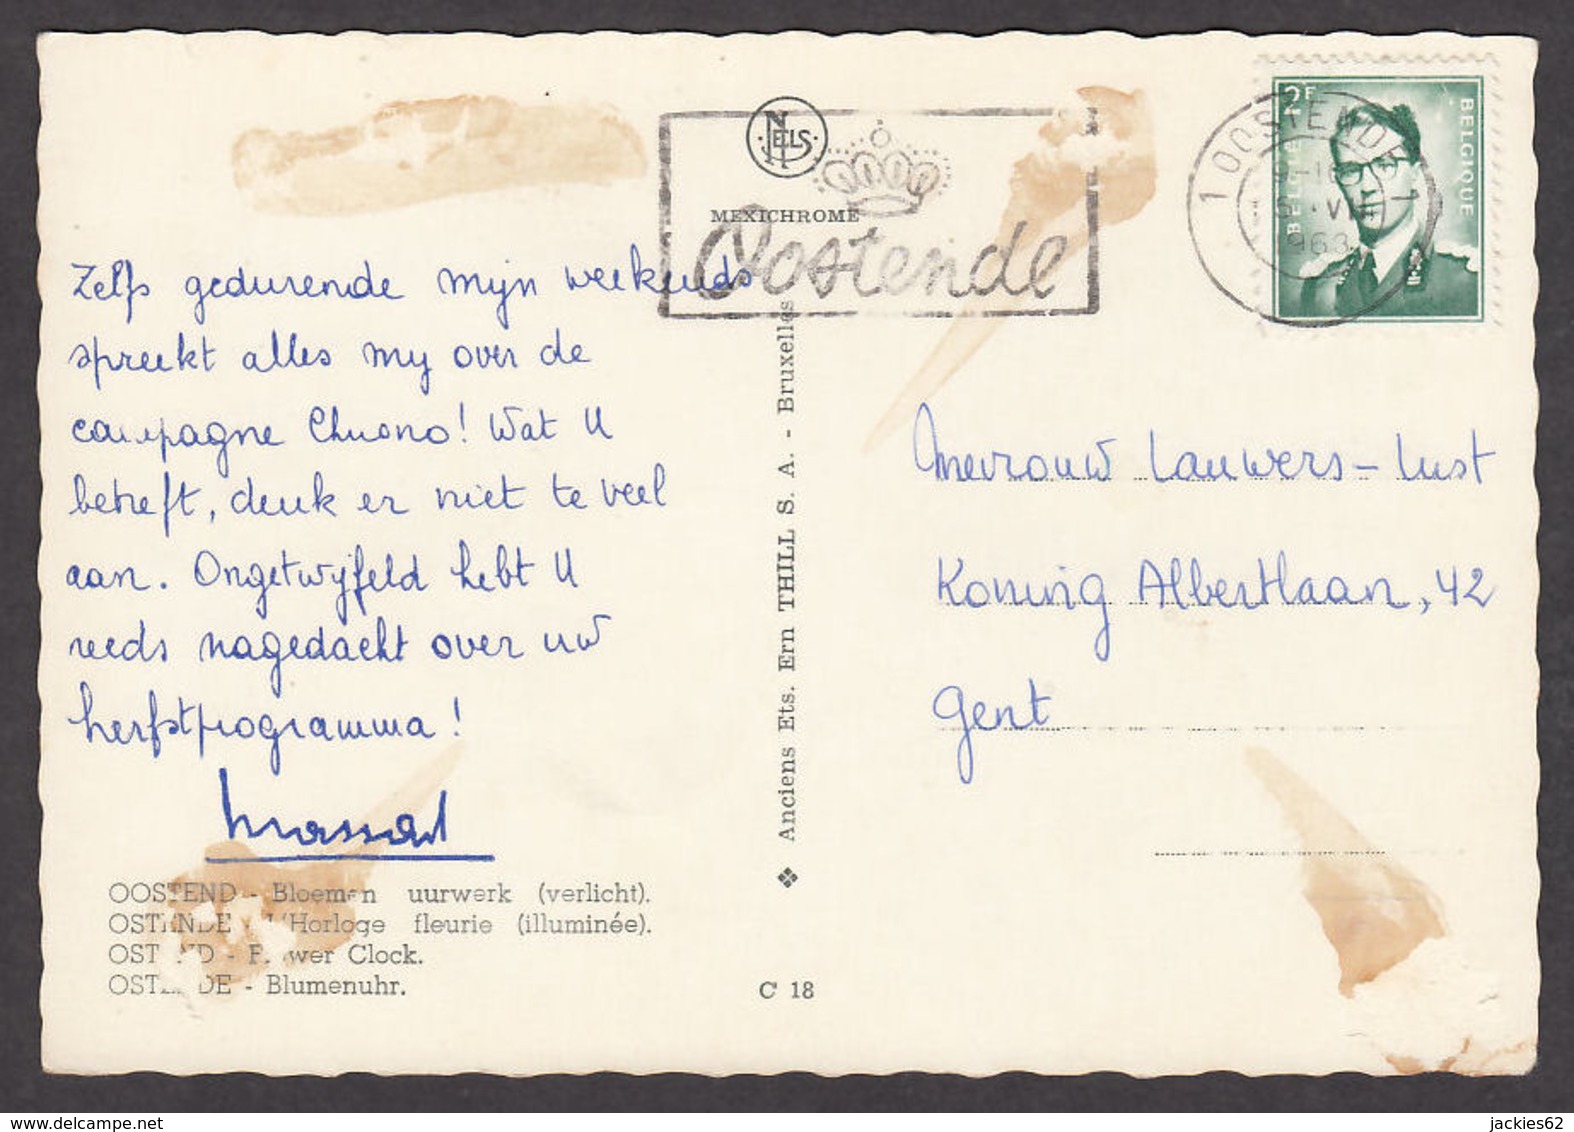 NELS
MEXICHROME
Oostende
1 OOSTENDE 1
963
2F
BELGIE
BELGIQUE
Zelfs gedurende mijn weekends
spreekt alles mij over de
campagne Chrono! Wat U
betreft, denk er niet te veel
aan. Ongetwijfeld hebt U
reeds nagedacht over uw
herfstprogramma!
Anciens Ets. Ern THILL S. A. - Bruxelles
Mevrouw Lauwers-Lust
Koning Albertlaan, 42
Gent
OOSTEND - Bloemen uurwerk (verlicht).
OSTENDE - L'Horloge fleurie (illuminée).
OSTEND - Flower Clock.
OSTENDE - Blumenuhr.
C 18
delcampe.net
jackies62